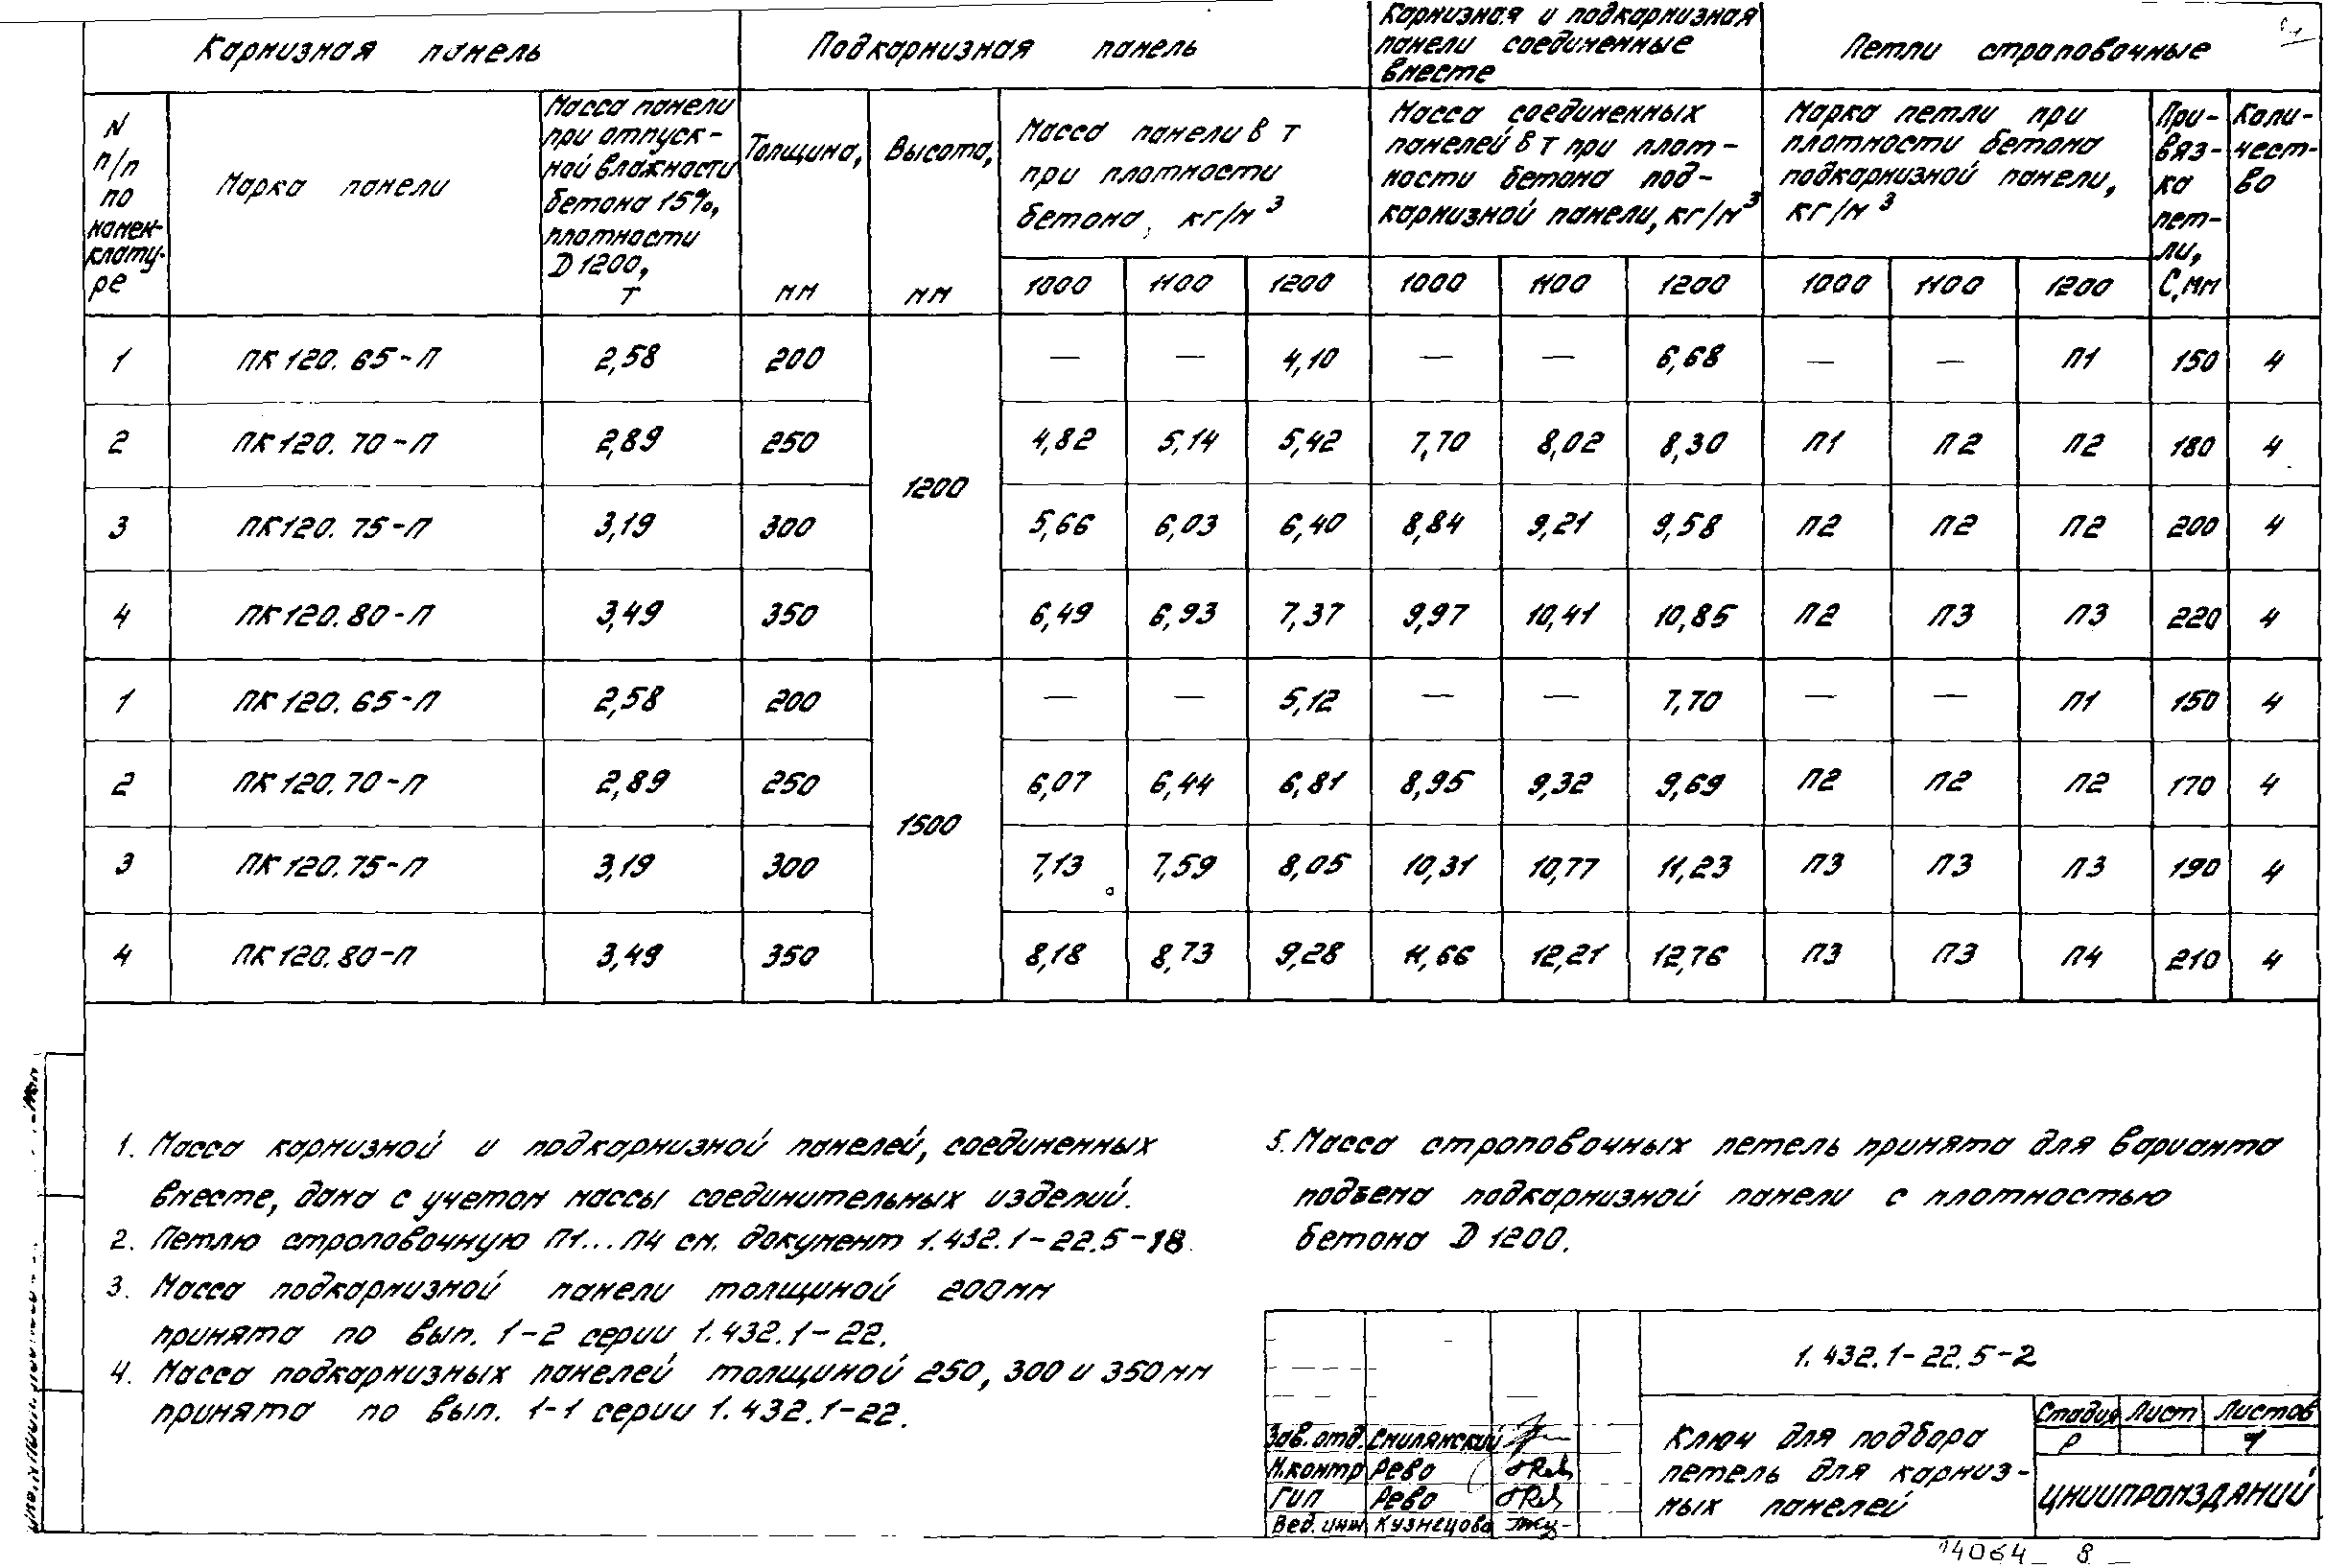 Карнизная панель
Подкарнизная панель
Карнизная и подкарнизная
панели соединенные
вместе
Петли строповочные
N
п/п
по
номен-
клату-
ре
Марка панели
Масса панели
при отпуск-
ной влажности
бетона 15%,
плотности
D 1200,
т
Толщина,
мм
Высота,
мм
Масса панели в т
при плотности
бетона, кг/м³
Масса соединенных
панелей в т при плот-
ности бетона под-
карнизной панели, кг/м³
Марка петли при
плотности бетона
подкарнизной панели,
кг/м³
При-
вяз-
ка
пет-
ли,
С, мм
Коли-
чест-
во
1000 1100 1200 1000 1100 1200 1000 1100 1200
1 ПК 120.65-П 2,58 200 — — 4,10 — — 6,68 — — П1 150 4
2 ПК 120.70-П 2,89 250 4,82 5,14 5,42 7,70 8,02 8,30 П1 П2 П2 180 4
1200
3 ПК 120.75-П 3,19 300 5,66 6,03 6,40 8,84 9,21 9,58 П2 П2 П2 200 4
4 ПК 120.80-П 3,49 350 6,49 6,93 7,37 9,97 10,41 10,85 П2 П3 П3 220 4
1 ПК 120.65-П 2,58 200 — — 5,12 — — 7,70 — — П1 150 4
2 ПК 120.70-П 2,89 250 6,07 6,44 6,81 8,95 9,32 9,69 П2 П2 П2 170 4
1500
3 ПК 120.75-П 3,19 300 7,13 7,59 8,05 10,31 10,77 11,23 П3 П3 П3 190 4
4 ПК 120.80-П 3,49 350 8,18 8,73 9,28 11,66 12,21 12,76 П3 П3 П4 210 4
1. Масса карнизной и подкарнизной панелей, соединенных
вместе, дана с учетом массы соединительных изделий.
2. Петлю строповочную П1...П4 см. документ 1.432.1-22.5-18.
3. Масса подкарнизной панели толщиной 200мм
принята по вып. 1-2 серии 1.432.1-22.
4. Масса подкарнизных панелей толщиной 250, 300 и 350мм
принята по вып. 1-1 серии 1.432.1-22.
5. Масса строповочных петель принята для варианта
подъема подкарнизной панели с плотностью
бетона D 1200.
1.432.1-22.5-2
Зав. отд. Смилянский
Н.контр Рево
ГИП Рево
Вед. инж Кузнецова
Ключ для подбора
петель для карниз-
ных панелей
Стадия Лист Листов
Р 1
ЦНИИПРОМЗДАНИЙ
14064 8